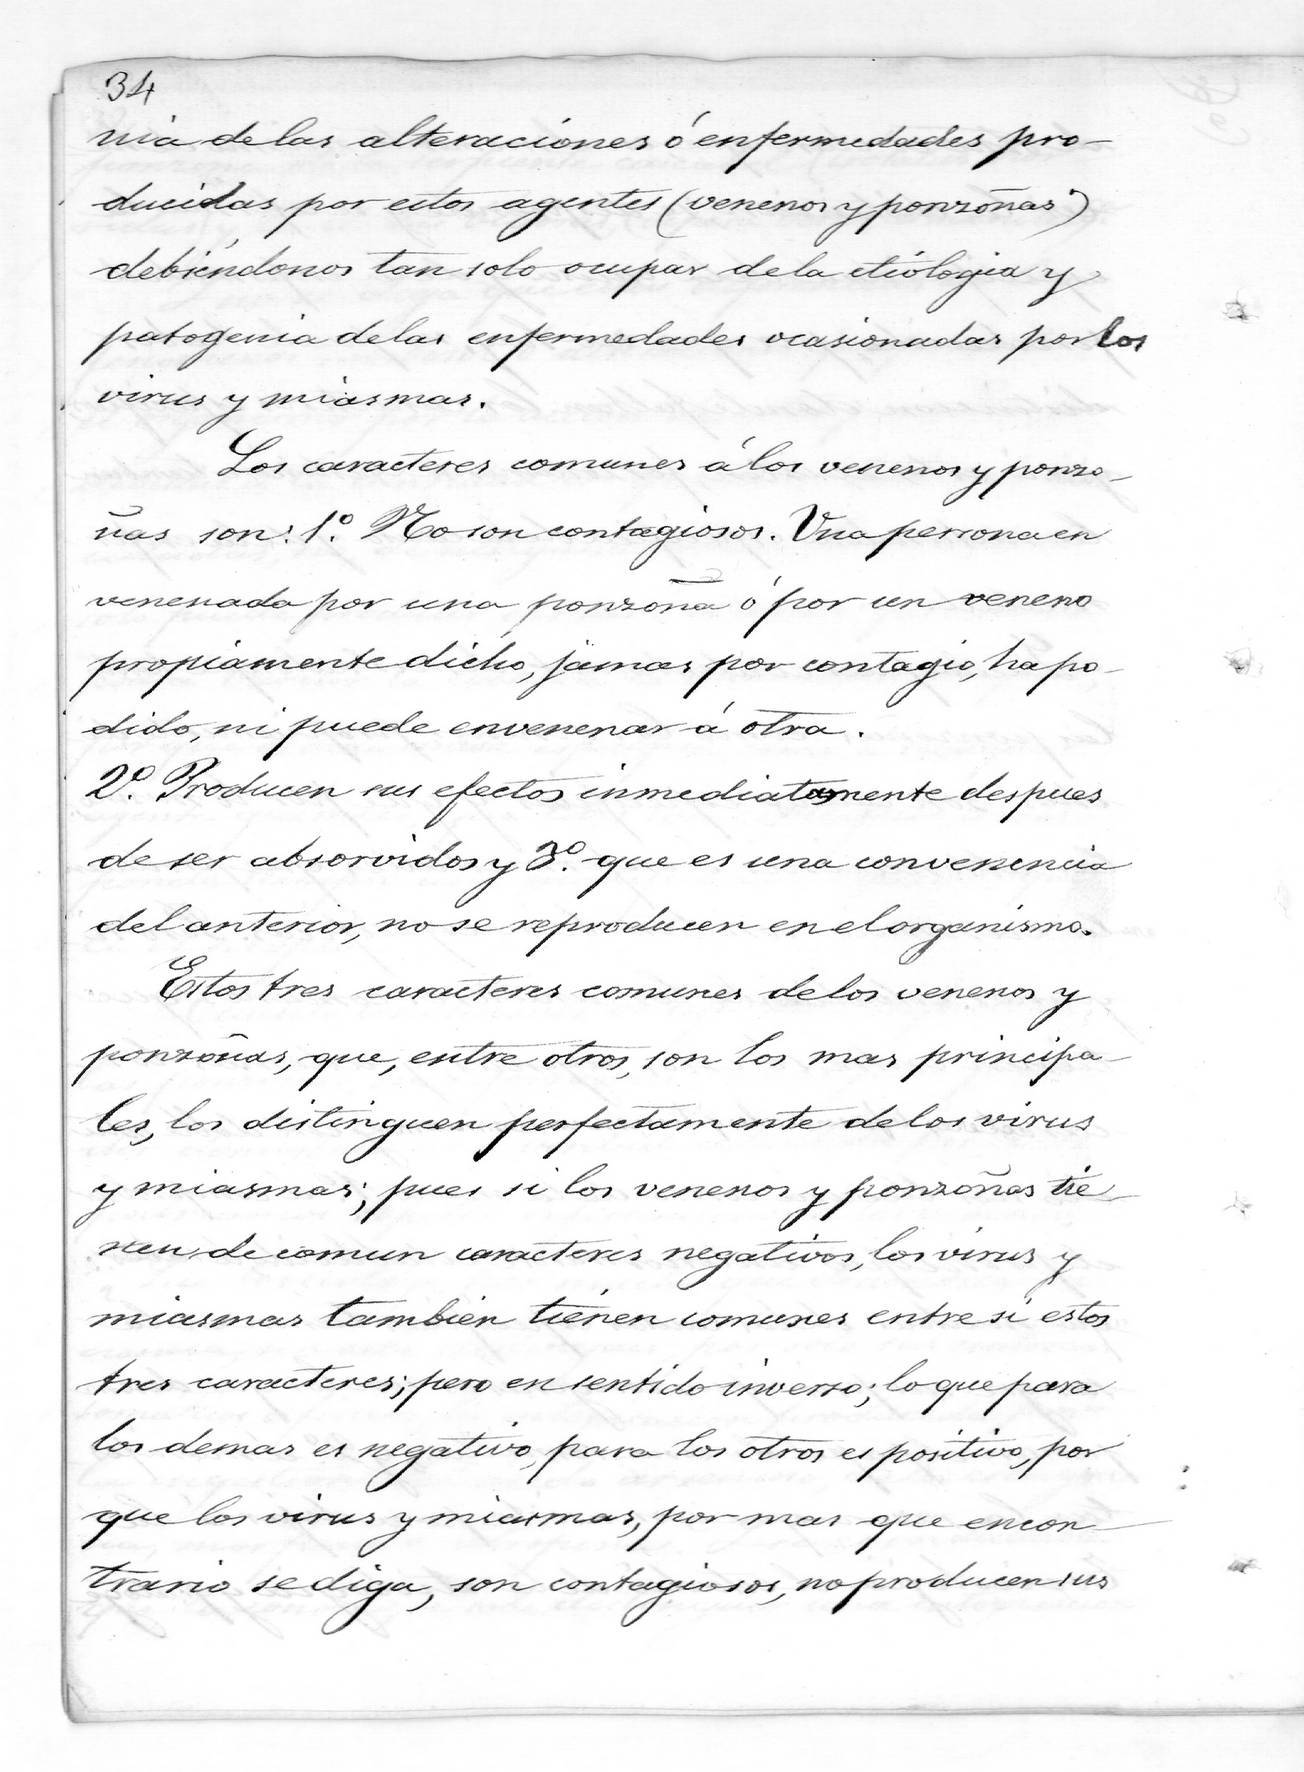 34
nia de las alteraciones ó enfermedades pro-
ducidas por estos agentes (venenos y ponzoñas)
debiéndonos tan solo ocupar de la etiologia y
patogenia de las enfermedades ocasionadas por los
virus y miasmas.
Los caracteres comunes á los venenos y ponzo-
ñas son: 1º. No son contagiosos. Una persona en
venenada por una ponzoña ó por un veneno
propiamente dicho, jamas por contagio, ha po-
dido, ni puede envenenar á otra.
2º. Producen sus efectos inmediatamente despues
de ser absorvidos y 3º. que es una convenencia
del anterior, no se reproducen en el organismo.
Estos tres caracteres comunes de los venenos y
ponzoñas, que, entre otros, son los mas principa-
les, los distinguen perfectamente de los virus
y miasmas; pues si los venenos y ponzoñas tie-
nen de comun caracteres negativos, los virus y
miasmas tambien tienen comunes entre si estos
tres caracteres; pero en sentido inverso; lo que para
los demas es negativo, para los otros es positivo, por
que los virus y miasmas, por mas que encon-
trario se diga, son contagiosos, no producen sus